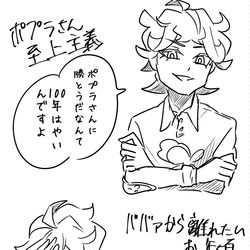 ポプラさん
至上主義
ポプラさんに
勝とうだなんて
100年はやい
んですよ
ババァから離れたい
お年頃